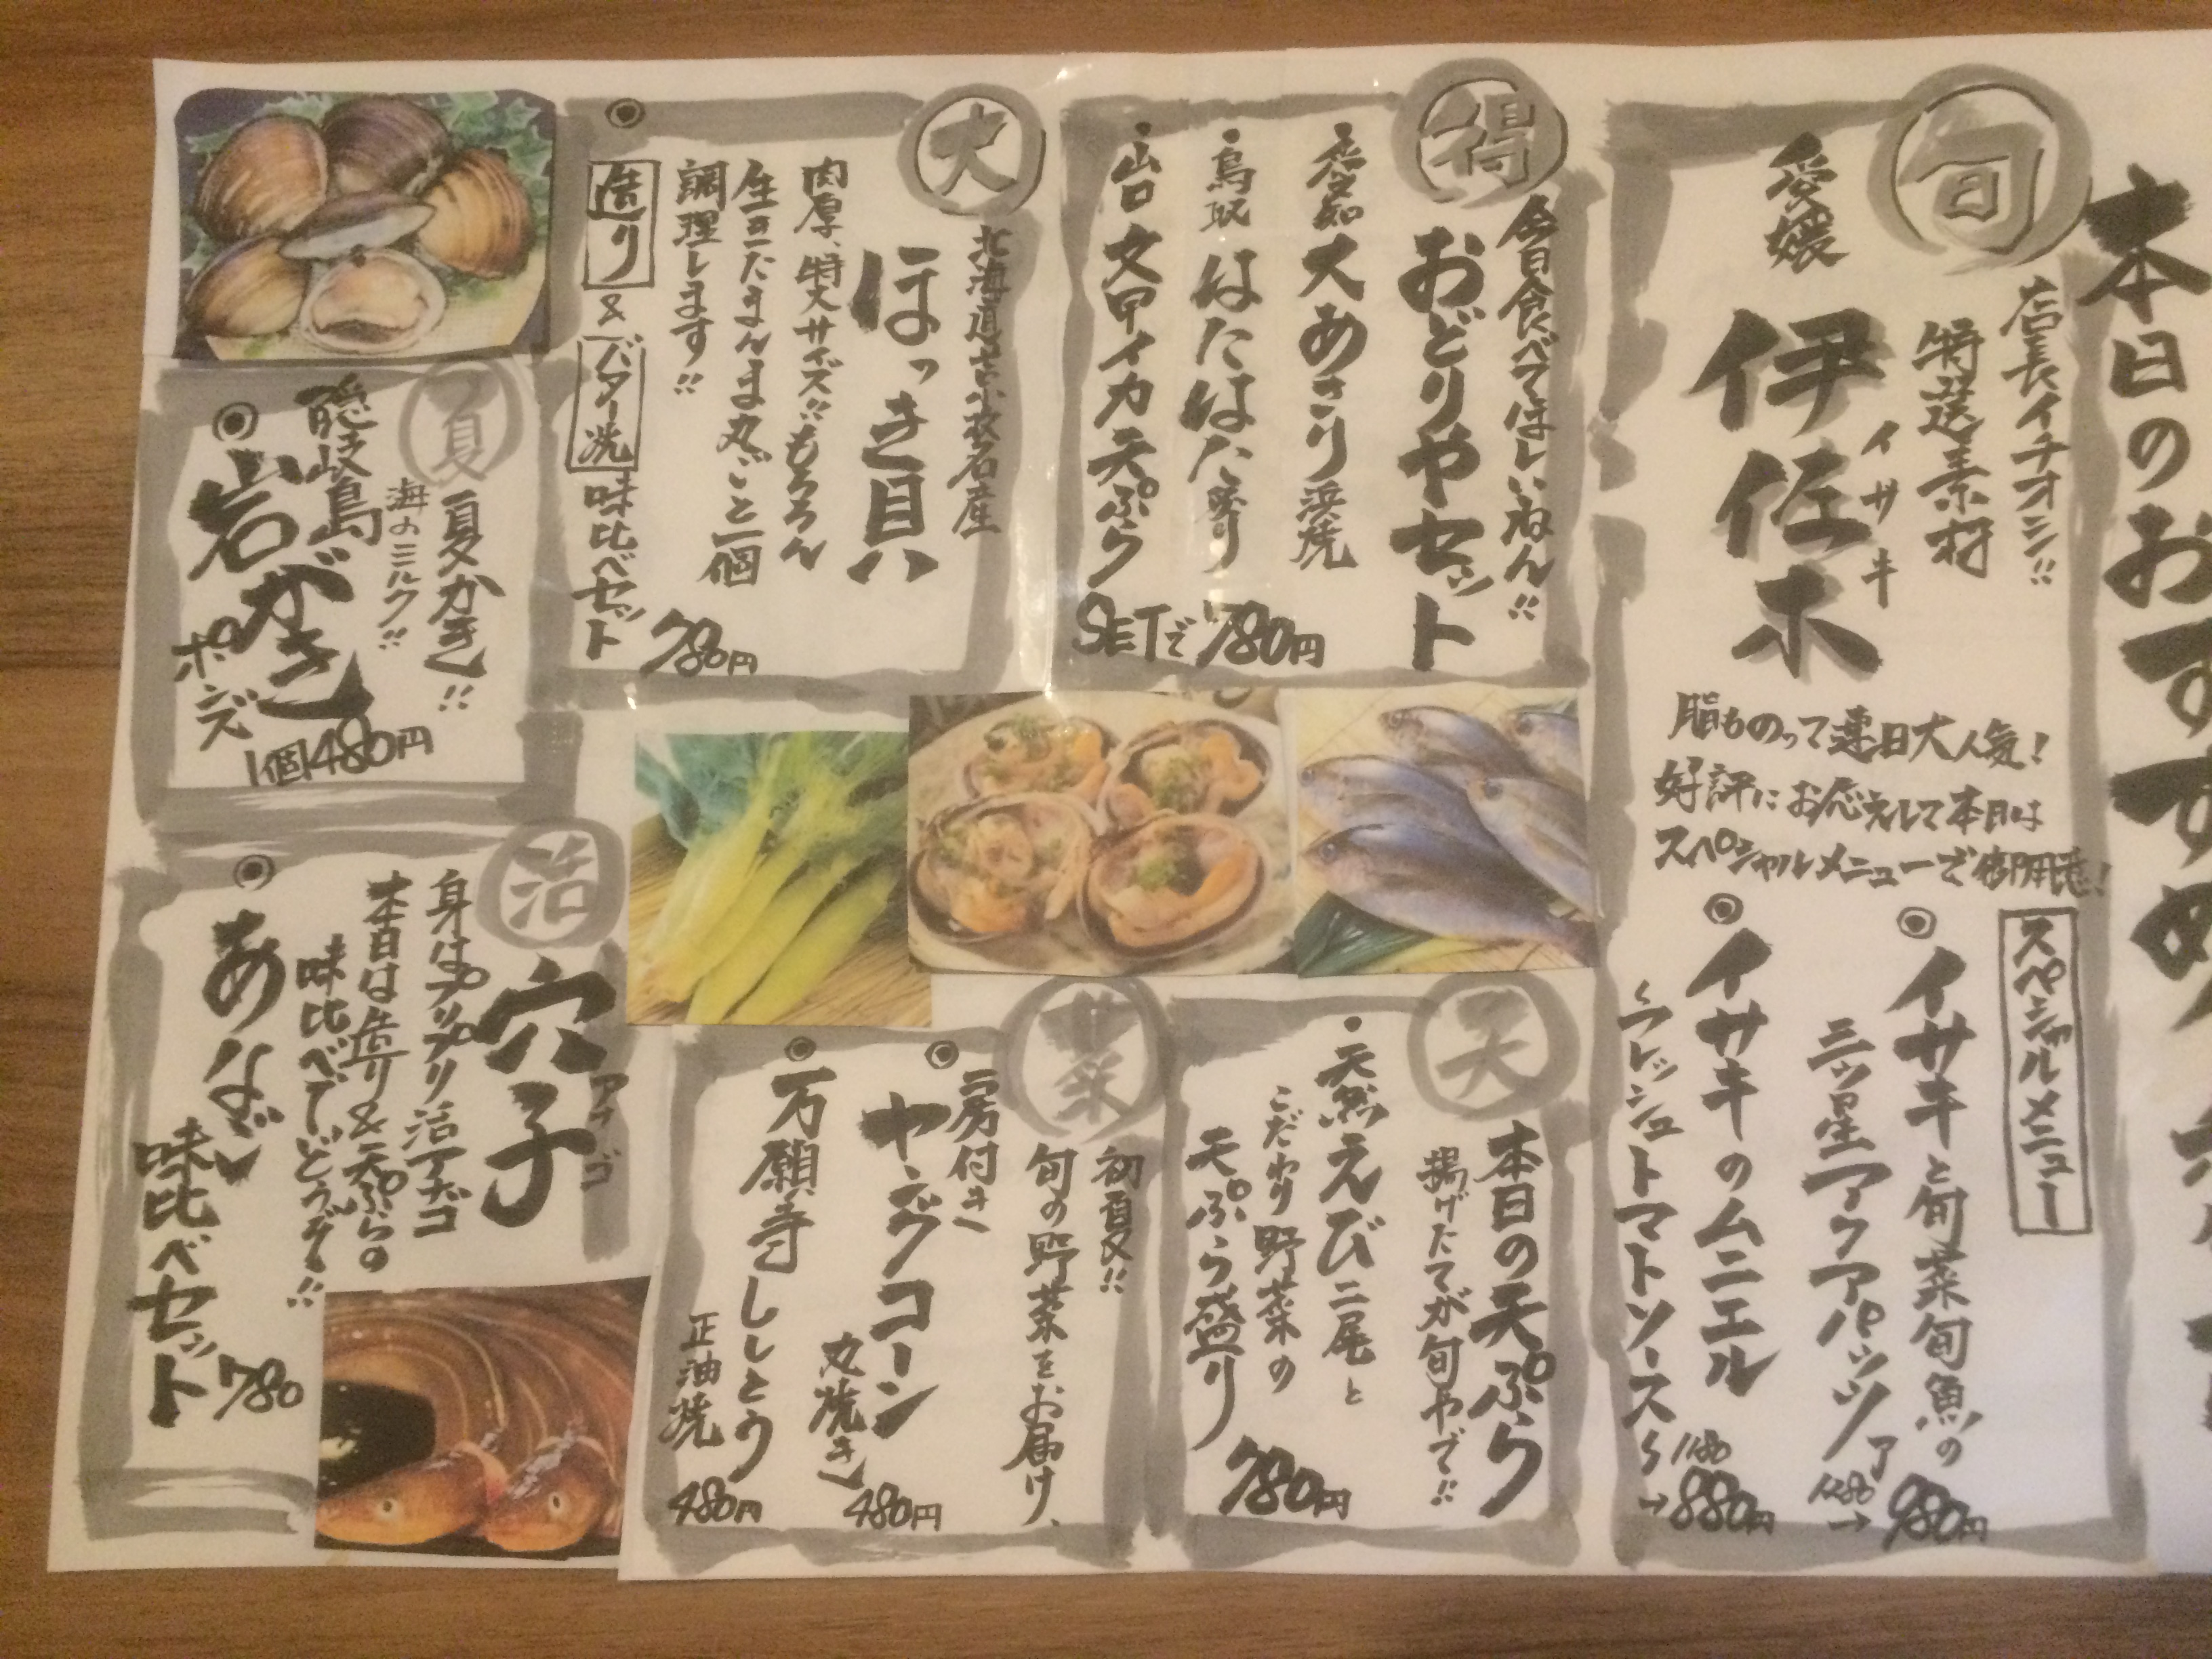 本日のおすすめ
旬
店長イチオシ!!
特選素材
愛媛
伊佐木
イサキ
脂ものって連日大人気!
好評にお応えして本日は
スペシャルメニューで御用意!
スペシャルメニュー
◉イサキと旬菜旬魚の
三ッ星アクアパッツァ
1280→980円
◉イサキのムニエル
〜フレッシュトマトソース〜
1180→880円
得
今日食べてほしいねん!!
おどりやセット
・愛知 大あさり浜焼
・鳥取 はたはた 寿り
・山口 文甲イカ天ぷら
SETで780円
大
北海道苫小牧産
ほっき貝
肉厚、特大サイズ!!もちろん
生きたまんま丸ごと一個
調理します!!
◉造り&バター焼 味比べセット
780円
夏
夏かき!!
海のミルク!!
隠岐島
◉岩がき
ポン酢
1個480円
天
本日の天ぷら
揚げたてが旬やで!!
・天然えび二尾と
こだわり野菜の
天ぷら盛り
780円
菜
初夏!!
旬の野菜をお届け、
房付き
◉ヤングコーン
丸焼き
480円
◉万願寺ししとう
正油焼
480円
活
穴子
アナゴ
身はプリプリ活アナゴ
本日は造り&天ぷらの
味比べでどうぞ!!
◉あなご
味比べセット
780